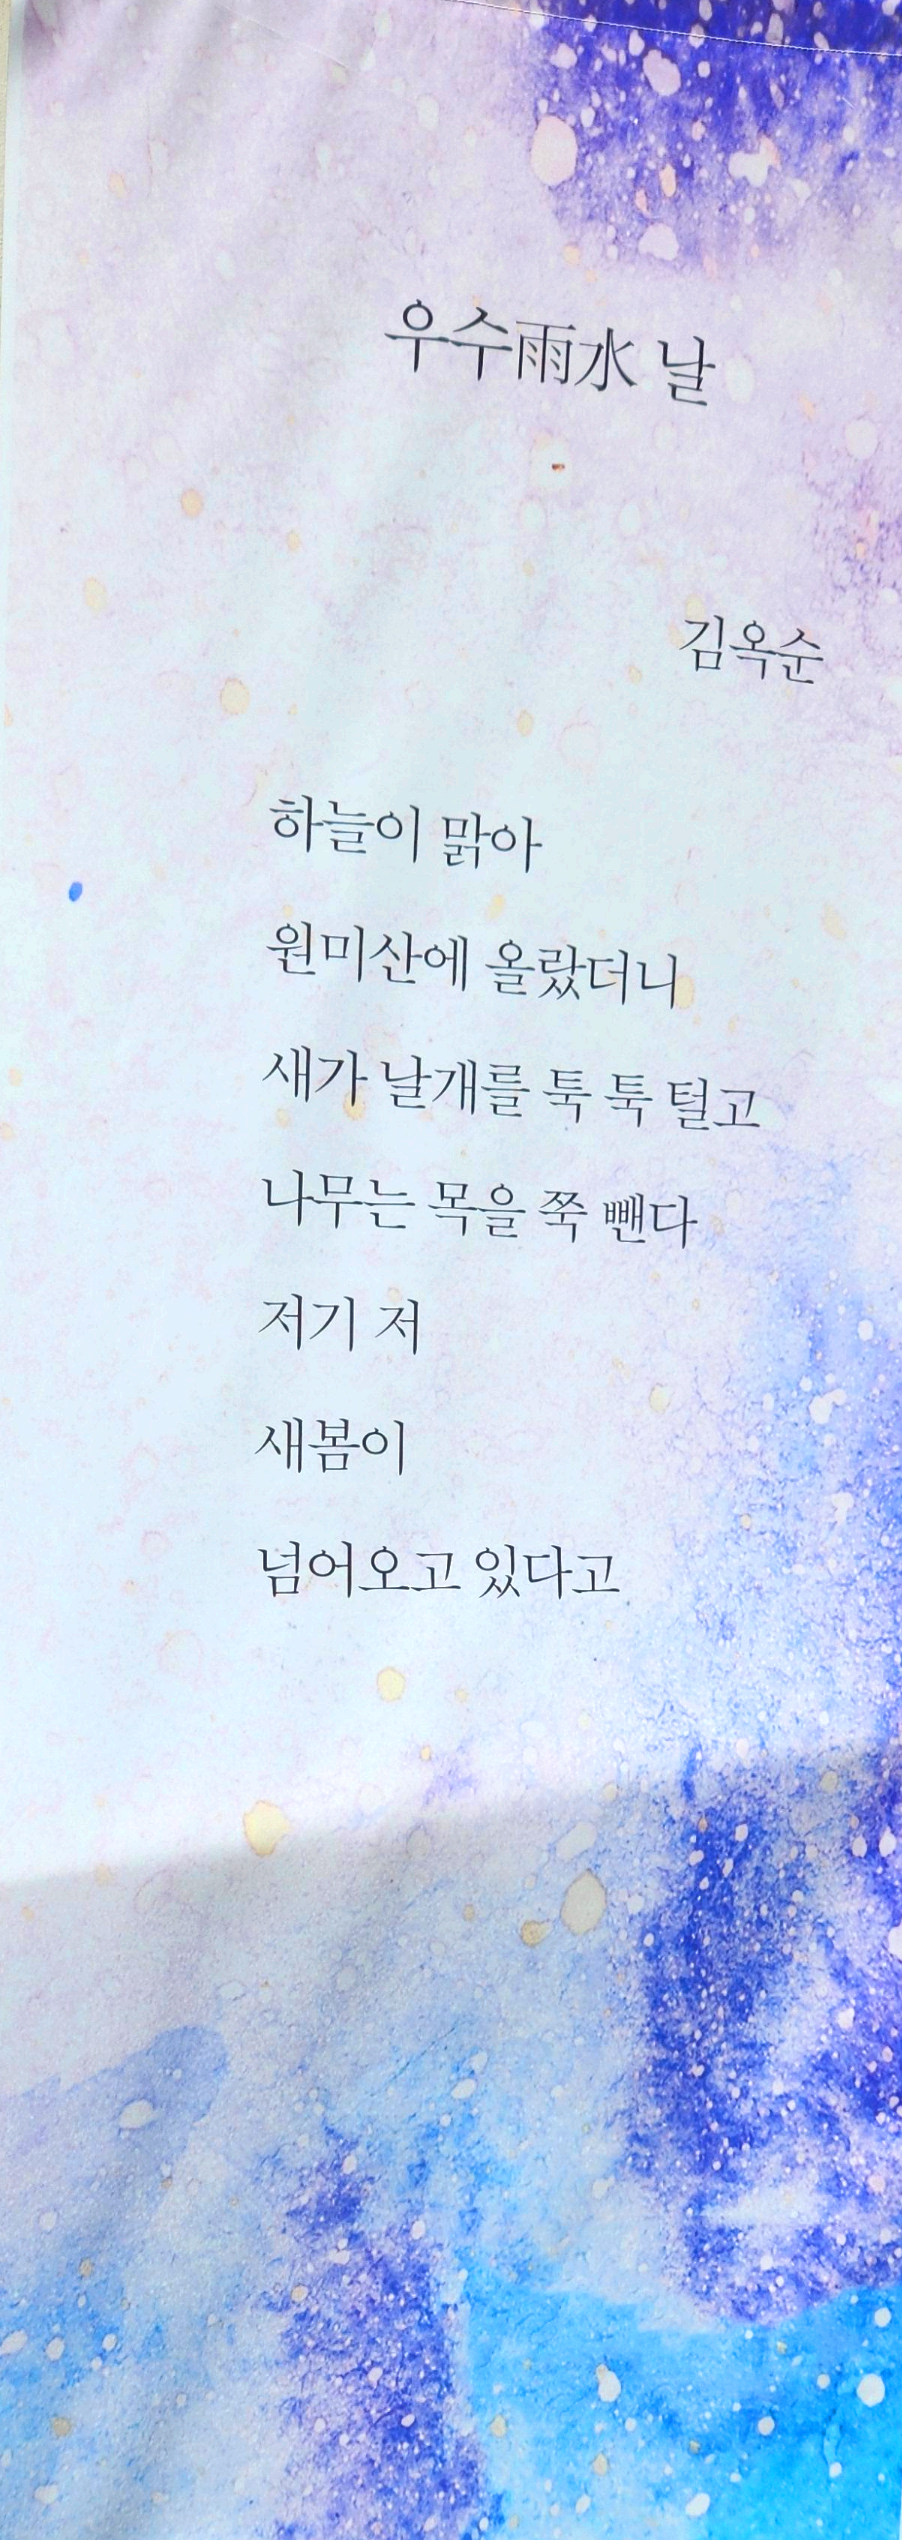 우수雨水 날
김옥순
하늘이 맑아
원미산에 올랐더니
새가 날개를 툭 툭 털고
나무는 목을 쭉 뺀다
저기 저
새봄이
넘어오고 있다고